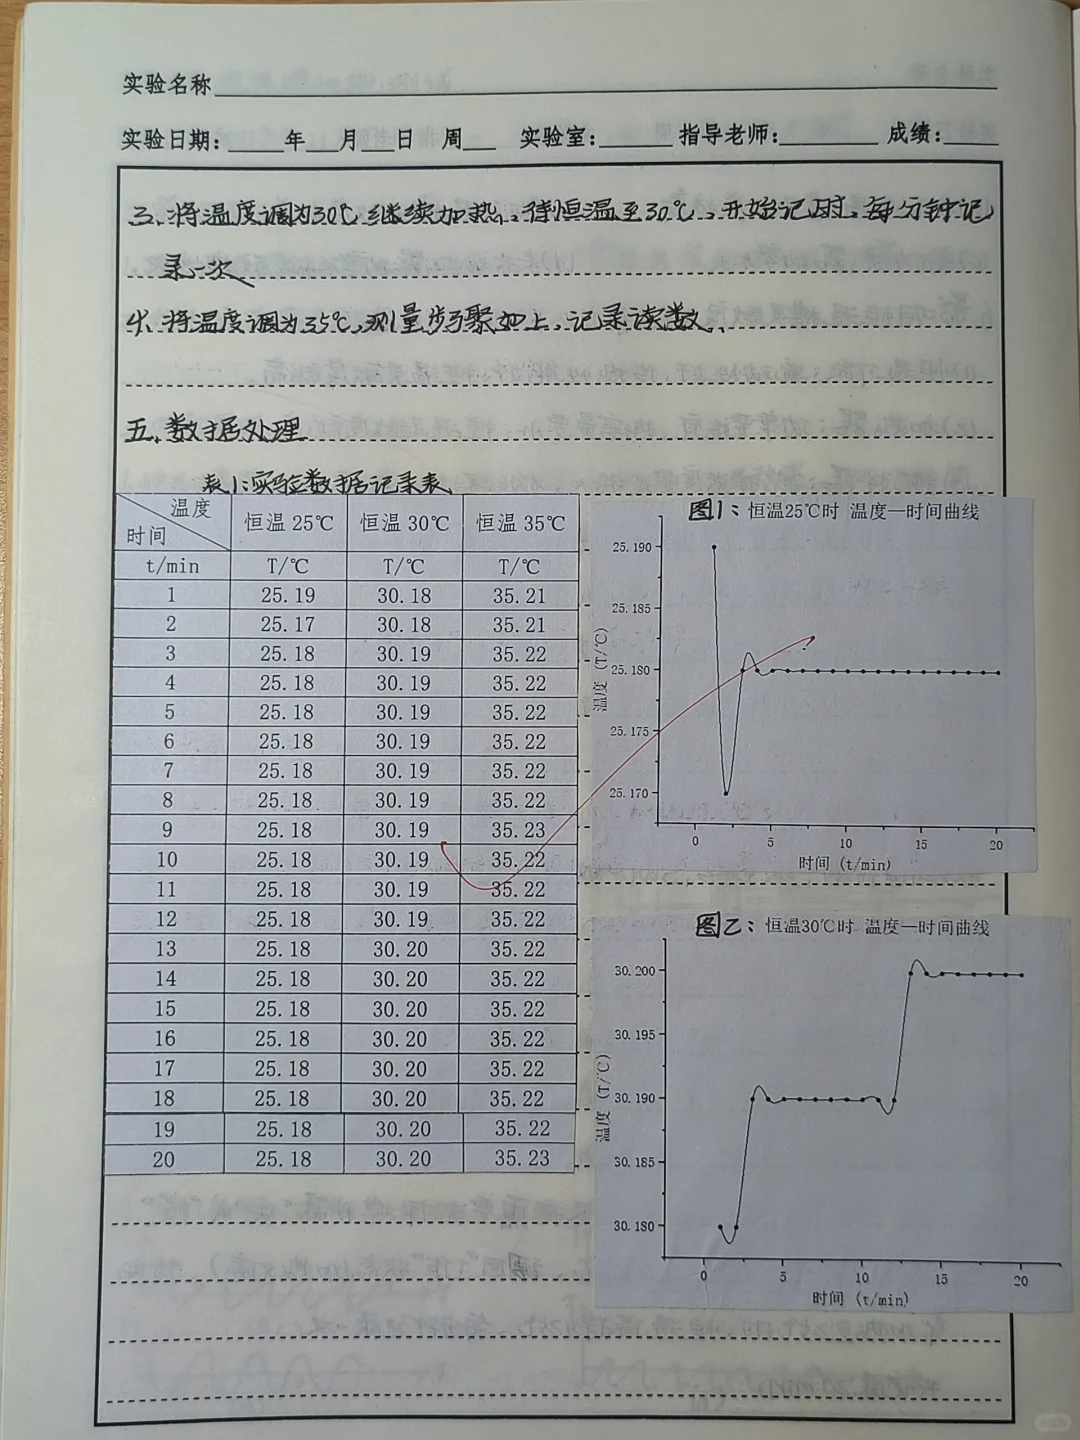 实验名称
实验日期: 年 月 日 周 实验室: 指导老师: 成绩:
三、将温度调为30℃继续加热,待恒温至30℃,开始记时,每分钟记
录一次
4、将温度调为35℃,测量步骤如上,记录读数。
五、数据处理
表1:实验数据记录表
温度
时间 恒温 25℃ 恒温 30℃ 恒温 35℃
t/min T/℃ T/℃ T/℃
1 25.19 30.18 35.21
2 25.17 30.18 35.21
3 25.18 30.19 35.22
4 25.18 30.19 35.22
5 25.18 30.19 35.22
6 25.18 30.19 35.22
7 25.18 30.19 35.22
8 25.18 30.19 35.22
9 25.18 30.19 35.23
10 25.18 30.19 35.22
11 25.18 30.19 35.22
12 25.18 30.19 35.22
13 25.18 30.20 35.22
14 25.18 30.20 35.22
15 25.18 30.20 35.22
16 25.18 30.20 35.22
17 25.18 30.20 35.22
18 25.18 30.20 35.22
19 25.18 30.20 35.22
20 25.18 30.20 35.23
图1:恒温25℃时 温度—时间曲线
25.190
25.185
25.180
25.175
25.170
温度 (T/℃)
0 5 10 15 20
时间 (t/min)
图乙:恒温30℃时 温度—时间曲线
30.200
30.195
30.190
30.185
30.180
温度 (T/℃)
0 5 10 15 20
时间 (t/min)